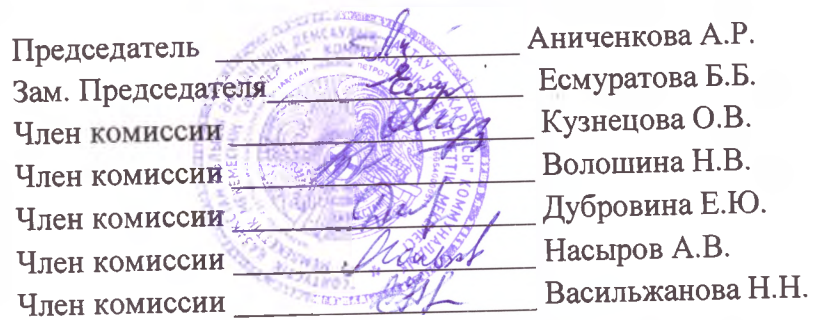 Председатель Аниченкова А.Р.
Зам. Председателя Есмуратова Б.Б.
Член комиссии Кузнецова О.В.
Член комиссии Волошина Н.В.
Член комиссии Дубровина Е.Ю.
Член комиссии Насыров А.В.
Член комиссии Васильжанова Н.Н.